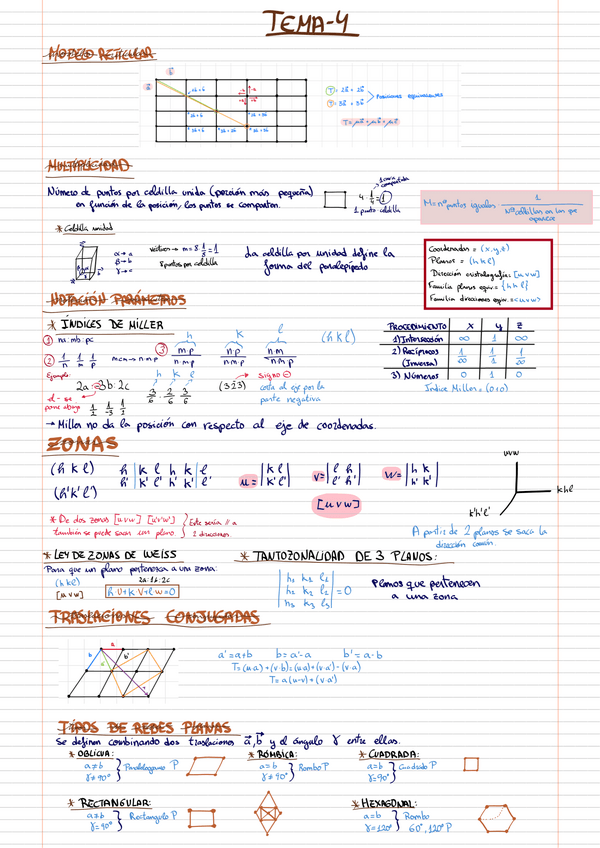 TEMA-4
MODELO RETICULAR
a
b
2a+b
T = 2a + 2b
T = 3a + 3b
Posiciones equivalentes
MULTIPLICIDAD
Número de puntos por celdilla unida (porción más pequeña)
en función de la posición, los puntos se comparten.
1 cara compartida
1 punto celdilla
M = nº puntos iguales · 1 / Nº celdillas en las que aparece
* Celdilla unidad
α → a
β → b
γ → c
vértices → m = 8 · 1/8 = 1
8 puntos por celdilla
La celdilla por unidad define la
forma del paralepípedo
Coordenadas = (x,y,z)
Planos = (h k l)
Dirección cristalográfica: [u v w]
Familia planos equiv. = {h k l}
Familia direcciones equiv. = <u v w>
NOTACIÓN PARÁMETROS
* ÍNDICES DE MILLER
① na: mb: pc
② 1/n 1/m 1/p mcm → n·m·p
③ h k l
m·p/n·m·p n·p/n·m·p n·m/n·m·p
(h k l)
Ejemplo:
2a -3b : 2c
el - se pone abajo
1/2 1/-3 1/2
h k l
3/6 · 2/6 · 3/6
(3 2 3) signo ⊖
corta al eje por la
parte negativa
PROCEDIMIENTO X Y Z
1) Intersección ∞ 1 ∞
2) Recíprocos (Inversa) 1/∞ 1/1 1/∞
3) Números 0 1 0
Índice Miller = (010)
→ Miller no da la posición con respecto al eje de coordenadas.
ZONAS
(h k l) h | k l h k | l
(h'k'l') h' | k' l' h' k' | l'
u = |k l / k' l'|
v = |l h / l' h'|
w = |h k / h' k'|
[u v w]
uvw
khl
k'h'l'
* De dos zonas [u v w] [u'v'w']
también se puede sacar un plano
Este sería // a
2 direcciones
A partir de 2 planos se saca la
dirección común.
* LEY DE ZONAS DE WEISS
Para que un plano pertenezca a una zona:
(h k l) 2a:1b:2c
[u v w] h·U+K·V+l·w=0
* TANTOZONALIDAD DE 3 PLANOS:
h₁ k₁ l₁
h₂ k₂ l₂ = 0
h₃ k₃ l₃
Planos que pertenecen
a una zona
TRASLACIONES CONJUGADAS
a
b
a'
b'
a' = a+b b = a'-a b' = a-b
T = (u·a)+(v·b) = (u·a)+(v·a')-(v·a)
T = a(u-v)+(v·a')
TIPOS DE REDES PLANAS
Se definen combinando dos traslaciones a,b y el ángulo γ entre ellas.
* OBLICUA:
a≠b
γ≠90°
Paralelogramo P
* RÓMBICA:
a=b
γ≠90°
Rombo P
* CUADRADA:
a=b
γ=90°
Cuadrado P
* RECTANGULAR:
a≠b
γ=90°
Rectangulo P
* HEXAGONAL:
a=b
γ=120°
Rombo
60°, 120° P